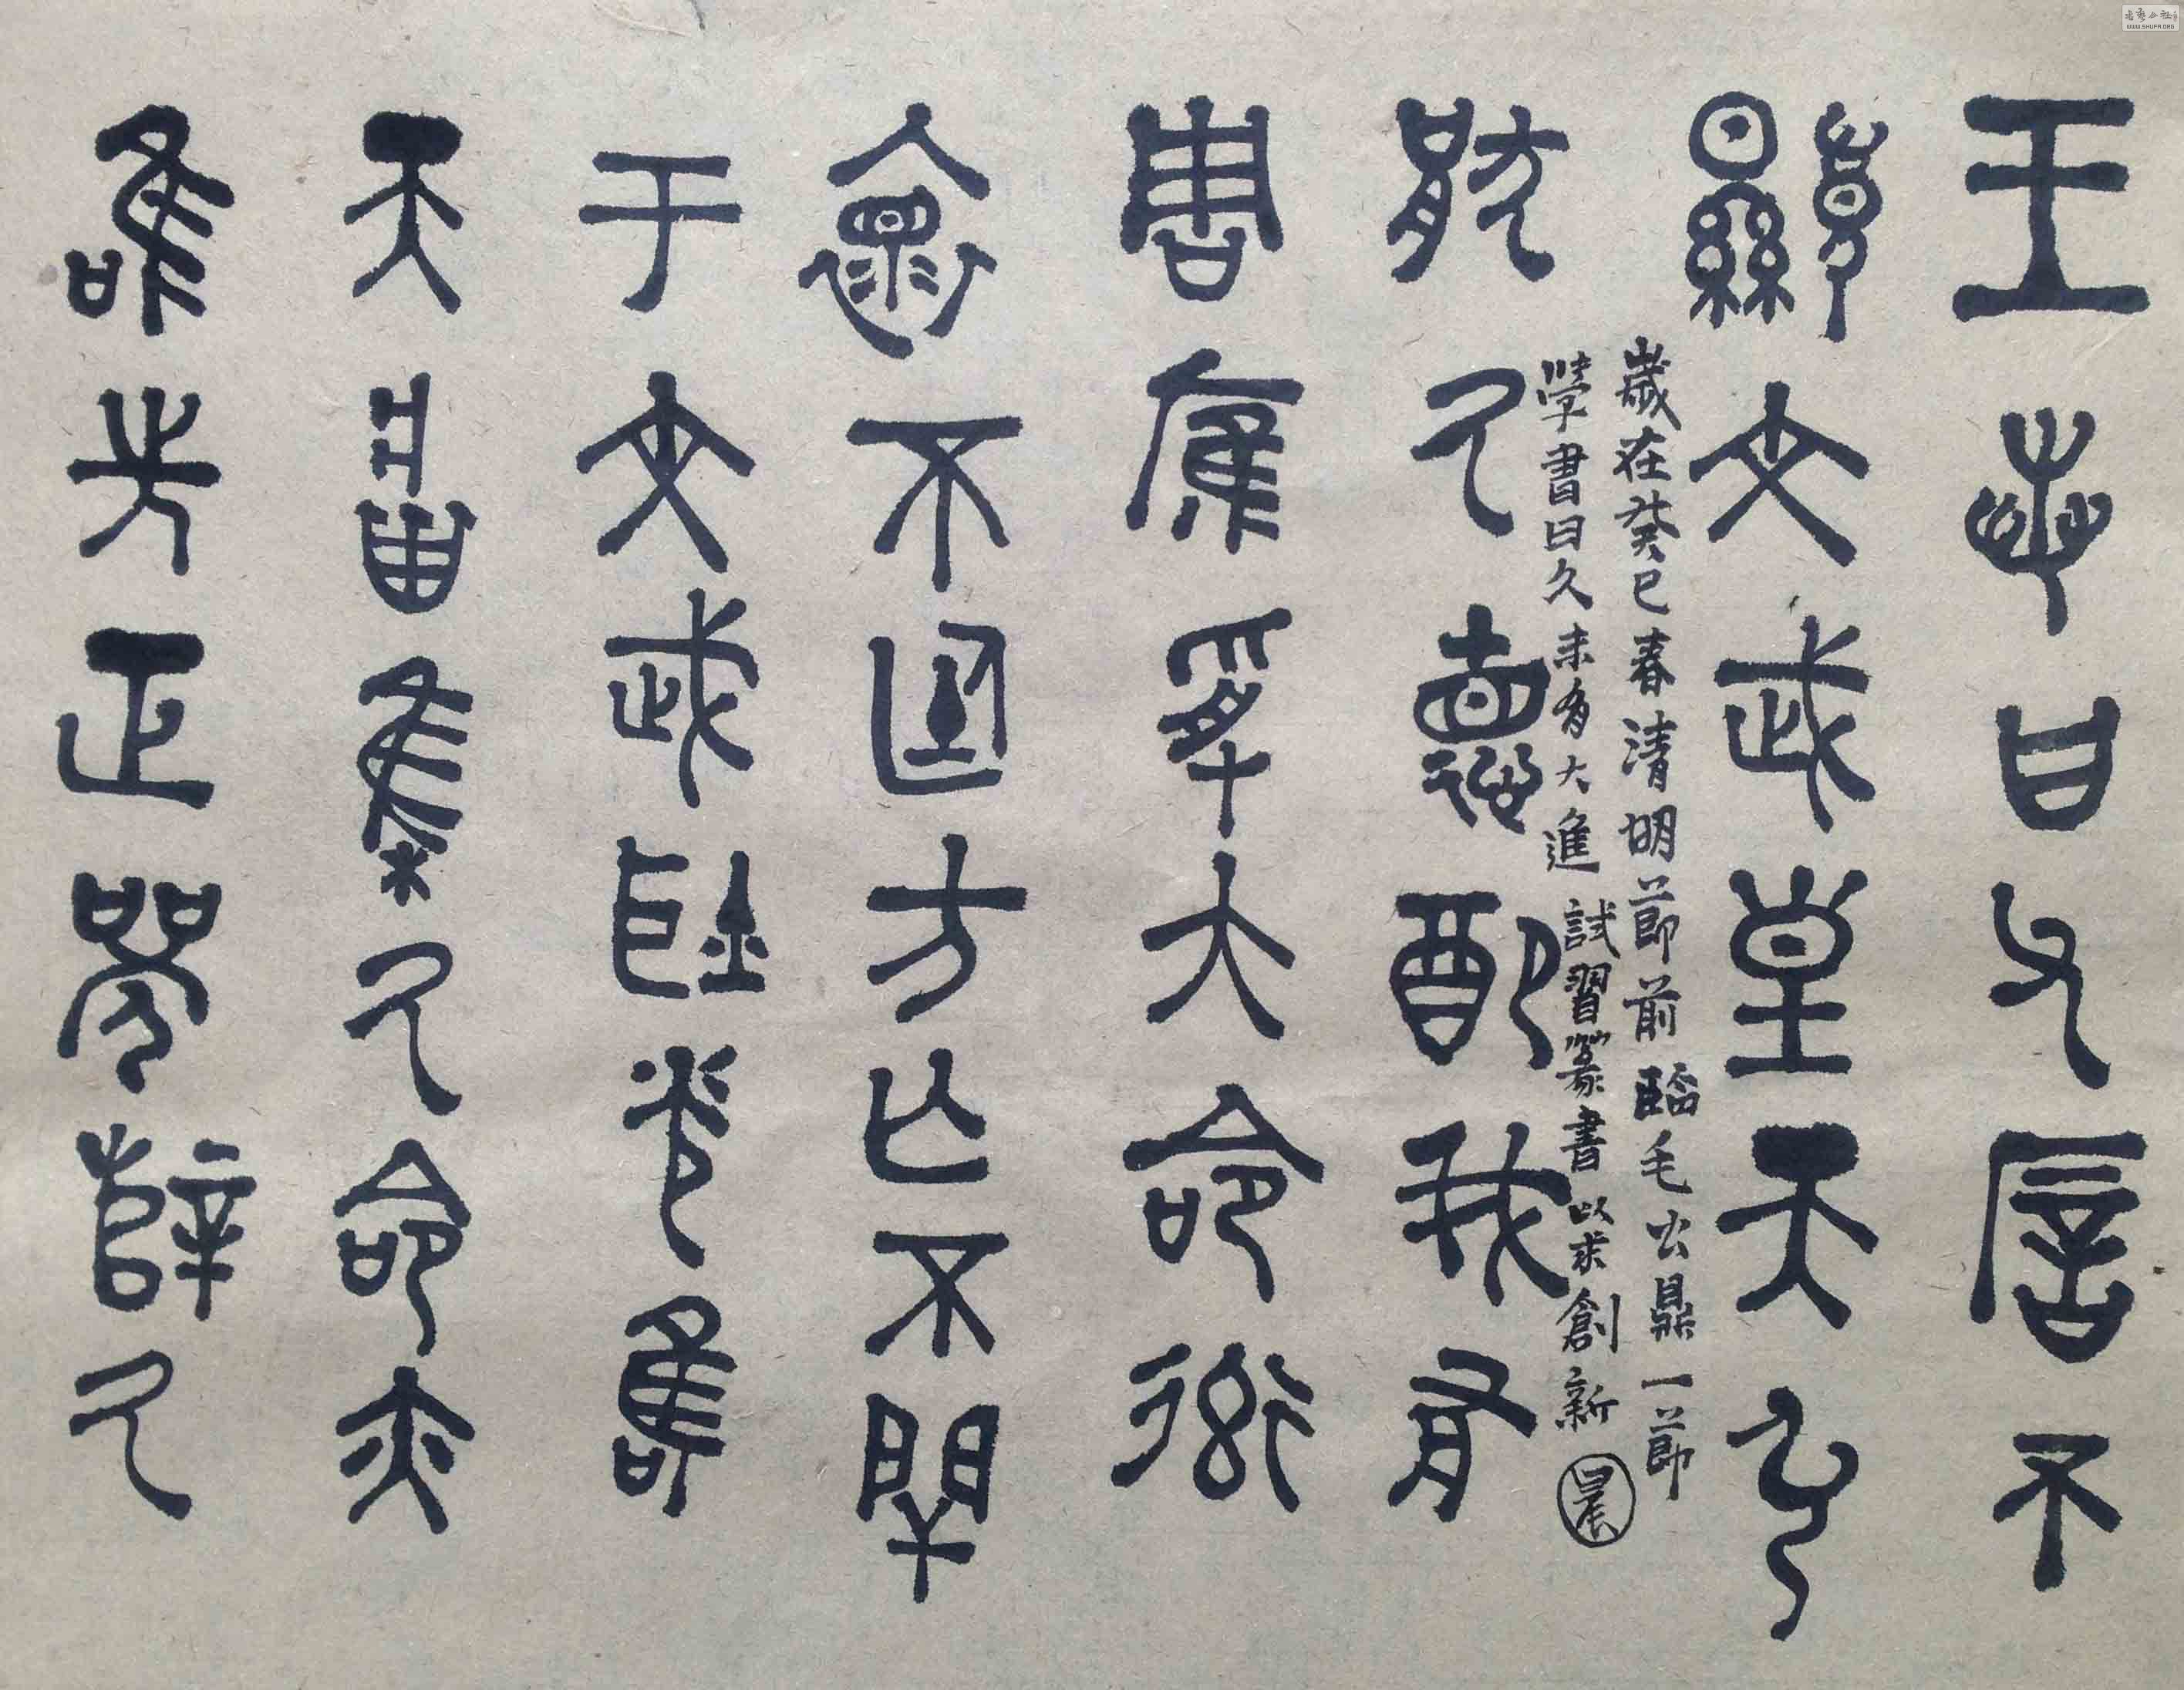 王若曰父厝不
顯文武皇天引
猒厥德配我有
周膺受大命率
懷不廷方亡不閈
于文武耿光唯
天將集厥命亦
唯先正襄辥厥
歲在癸巳春清明節前臨毛公鼎一節
學書日久未有大進試習篆書以求創新
晨
WWW.SHUFA.ORG